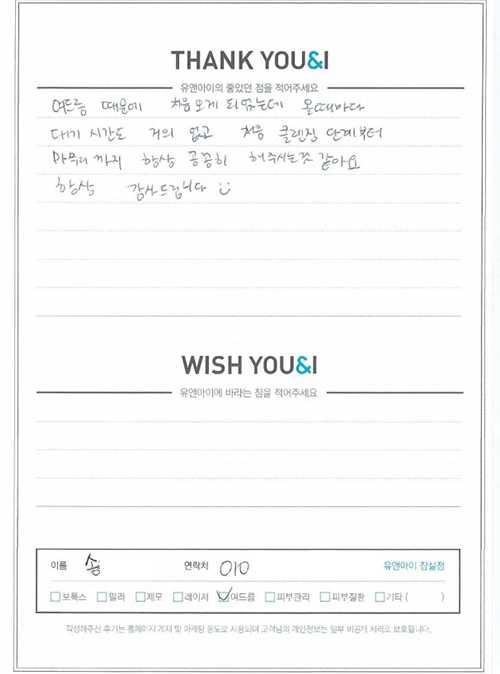 THANK YOU&I
유앤아이의 좋았던 점을 적어주세요
여드름 때문에 처음 오게 되었는데 올때마다
대기 시간도 거의 없고 처음 클렌징 단계부터
마무리 까지 항상 꼼꼼히 해주시는것 같아요
항상 감사드립니다
WISH YOU&I
유앤아이에 바라는 점을 적어주세요
이름 송 연락처 010 유앤아이 잠실점
보톡스 필러 제모 레이저 여드름 피부관리 피부질환 기타 ( )
작성해주신 후기는 홈페이지 게재 및 마케팅 용도로 사용되며 고객님의 개인정보는 일부 비공개 처리로 보호됩니다.